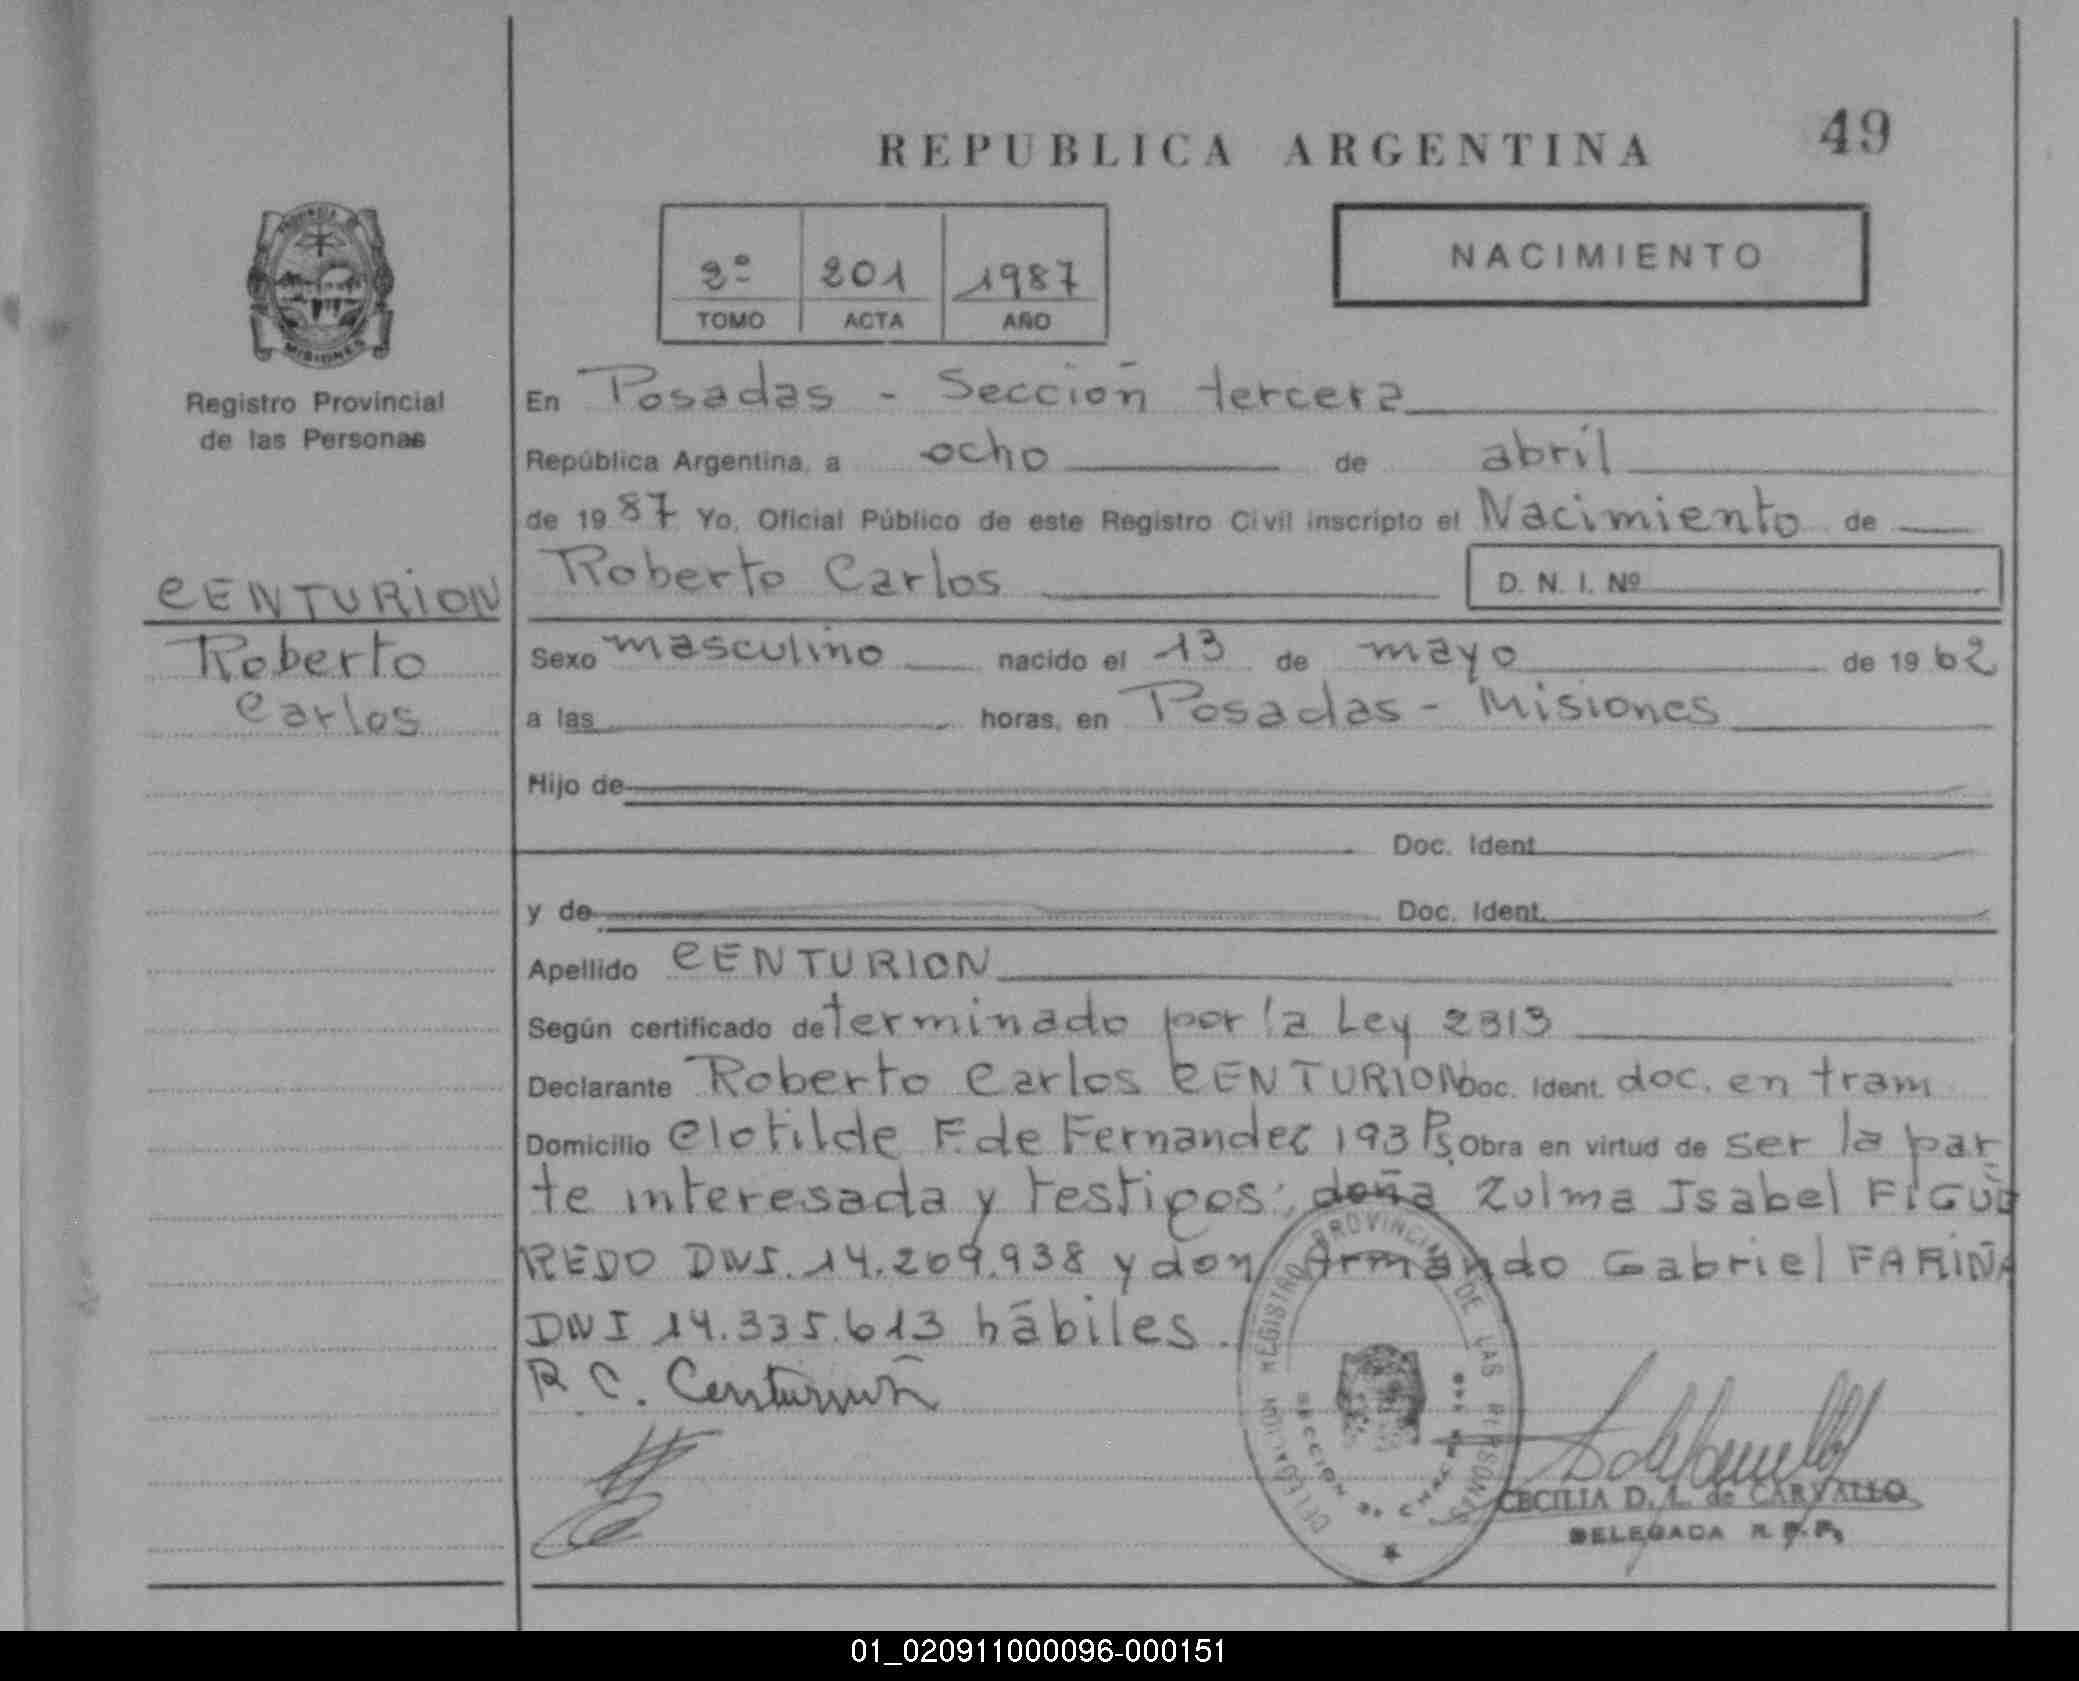 REPUBLICA ARGENTINA
49
NACIMIENTO
2º 201 1987
TOMO ACTA AÑO
MISIONES
Registro Provincial
de las Personas
CENTURION
Roberto
Carlos
En Posadas - Sección tercera
República Argentina, a ocho de abril
de 1987 Yo, Oficial Público de este Registro Civil inscripto el Nacimiento de
Roberto Carlos D. N. I. Nº
Sexo masculino nacido el 13 de mayo de 1962
a las horas, en Posadas - Misiones
Hijo de
Doc. Ident.
y de Doc. Ident.
Apellido CENTURION
Según certificado determinado por la Ley 2313
Declarante Roberto Carlos CENTURION Doc. Ident. doc. en tram
Domicilio Clotilde F. de Fernandez 193 Ps. Obra en virtud de ser la par
te interesada y testigos: doña Zulma Isabel FIGUE
REDO DNI. 14.269.938 y don Armando Gabriel FARIÑA
DNI 14.335.613 hábiles.
R C. Centurión
DELEGACION REGISTRO PROVINCIAL DE LAS PERSONAS
CECILIA D. L. de CARVALLO
DELEGADA R. P. P.
01_020911000096-000151